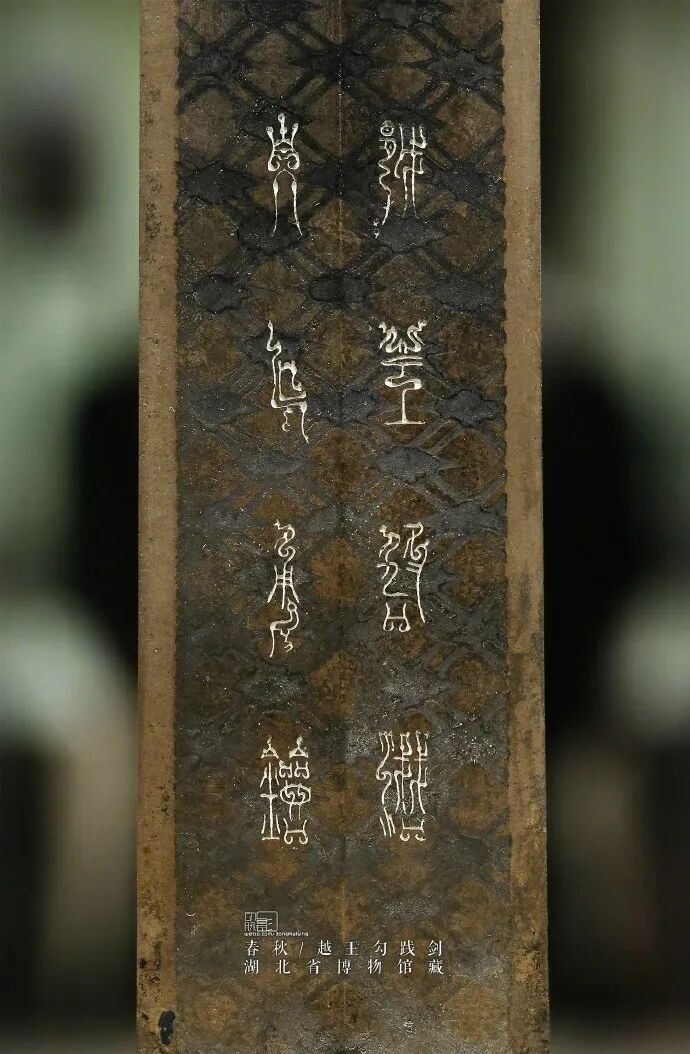 越王鳩淺
自乍用鐱
春秋/越王勾践剑
湖北省博物馆藏